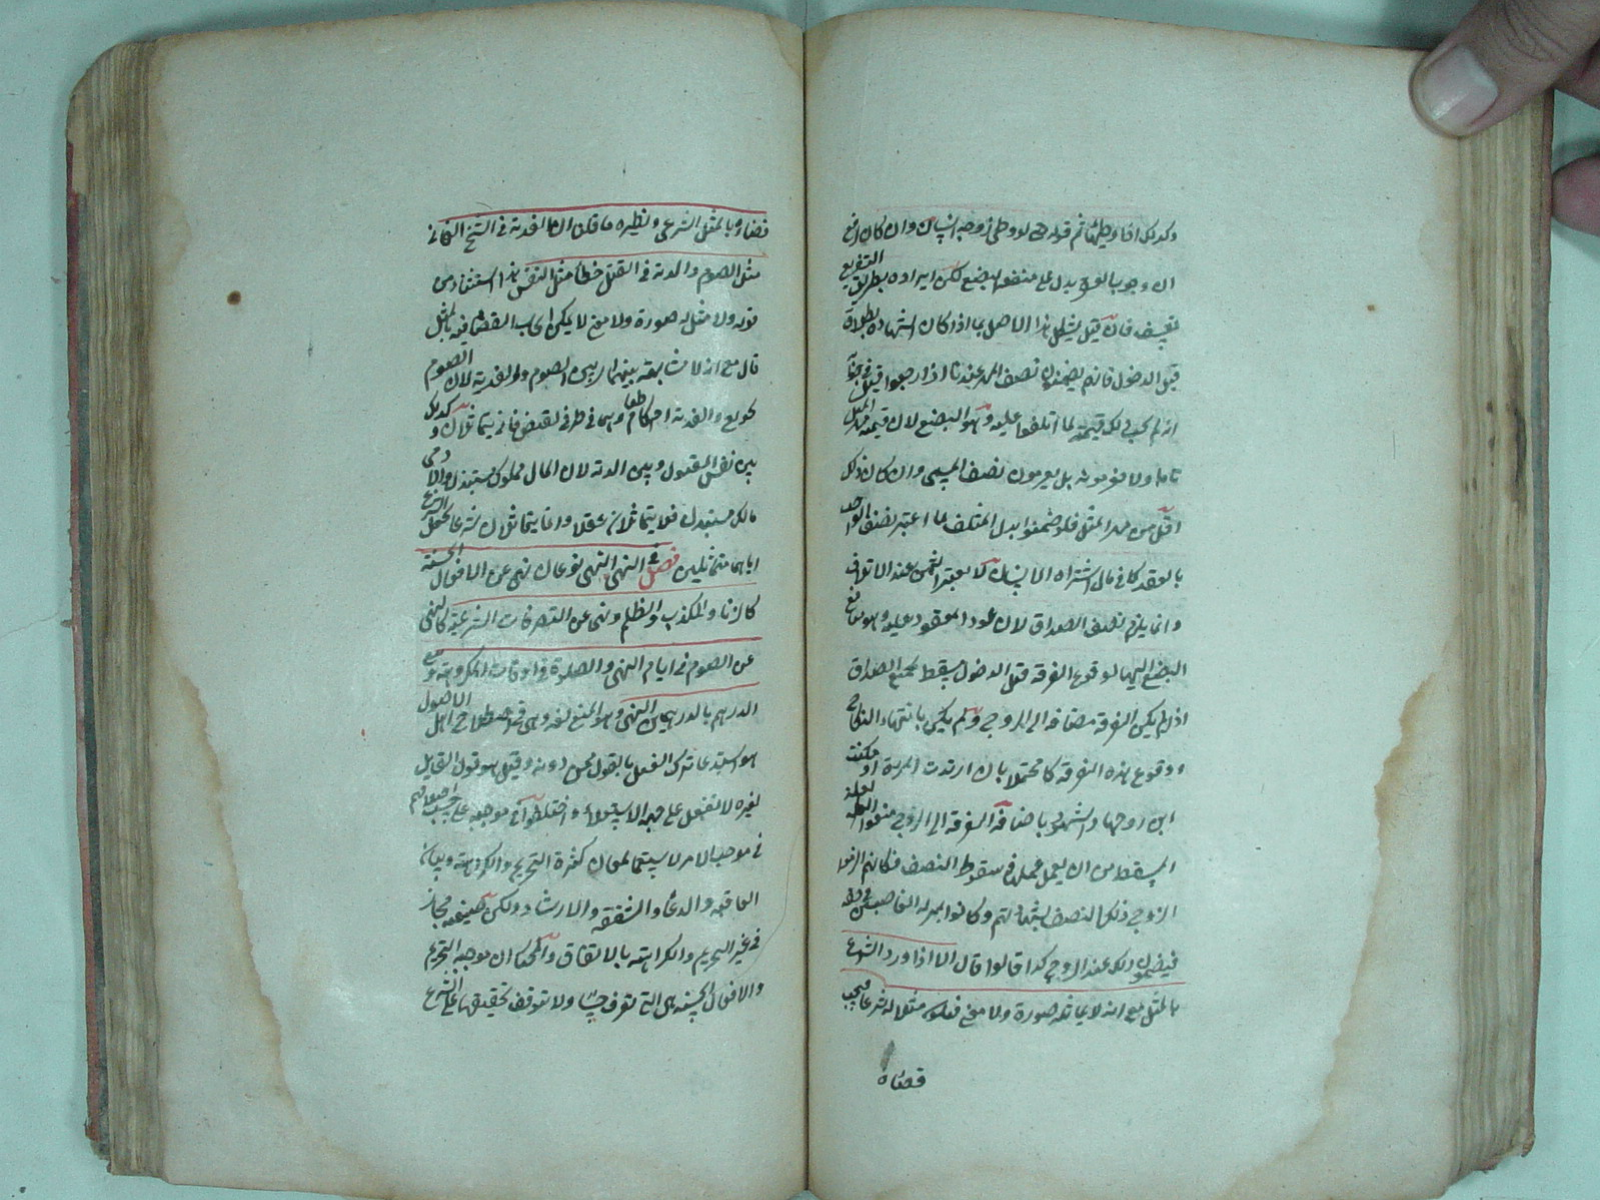 وكذلك اذا وطئها ثم قوله حتى لو وطئ زوجة انسان وان كان
ان وجوب العقر يدل على منفعة البضع لكن ايراده بطريق التفريع
تعسف فان قيل يشكل هذا الاصل بما اذا كان الشهادة بطلاق
قبل الدخول فانهم يضمنون نصف المهر عندنا اذا رجعوا قيل في جوابه
انه لم يجب ذلك قيمة لما اتلفوا عليه وهو البضع لان قيمته مهر المثل
تاما ولا يغرمونه بل يغرمون نصف المسمى وان كان ذلك
اقل من مهر المثل فلو ضمنوا بدل المتلف لما اعتبر نصف الواجب
بالعقد كما في مال اشتراه انسان لا يعتبر الثمن عند الاتلاف
وانما يلزم نصف الصداق لان عود المعقود عليه وهو منافع
البضع اليها لوقوع الفرقة قبل الدخول مسقط لجميع الصداق
اذا لم يكن الفرقة مضافة الى الزوج ولم يكن بانتهاء النكاح
ووقوع هذه الفرقة كان محتملا بان ارتدت المرأة او مكنت
ابن زوجها والشهود باضافة الفرقة الى الزوج منعوا العلة
المسقط من ان يعمل عمله في سقوط النصف فكانهم الزموا
الزوج ذلك النصف بشهادتهم وكانوا بمنزلة الغاصب في حق
فيضمنون ذلك عند الرجوع كذا قالوا قال الا اذا ورد الشرع
بالمثل مع انه لا يماثله صورة ولا معنى فيكون مثلا له شرعا فيجب
قضاه
قضاؤه بالمثل الشرعي ونظيره ما قلنا ان الفدية في الشيخ الفاني
مثل الصوم والدية في القتل خطأ مثل النفس هذا استثناء من
قوله ولا مثل له صورة ولا معنى لا يمكن ايجاب القضاء فيه بالمثل
قال مع انه لا مشابهة بينهما اي بين الصوم والفدية لان الصوم
تجويع والفدية اطعام وهما في طرفي نقيض فانى يتماثلان وكذلك
بين نفس المقتول وبين الدية لان المال مملوك مبتذل والآدمي
مالك مبتذل فلا يتماثلان عقلا وانما يتماثلان شرعا لجعل الشرع
اياهما متماثلين فصل في النهي النهي نوعان نهي عن الافعال الحسية
كالزنا والكذب والظلم ونهي عن التصرفات الشرعية كالنهي
عن الصوم في ايام النهي والصلوة في اوقات المكروهة وبيع
الدرهم بالدرهمين النهي وهو المنع لغة وهي في اصطلاح اهل الاصول
هو استدعاء ترك الفعل بالقول ممن دونه وقيل هو قول القايل
لغيره لا تفعل على جهة الاستعلاء واختلفوا في موجبه على حسب اختلافهم
في موجب الامر لاستعماله لمعان كثيرة التحريم والكراهة وبيان
العاقبة والدعاء والشفقة والارشاد ولكن صيغة مجاز
في غير التحريم والكراهة بالاتفاق والمختار ان موجبه التحريم
والافعال الحسية هي التي تعرف حسا ولا تتوقف تحقيقها على الشرع